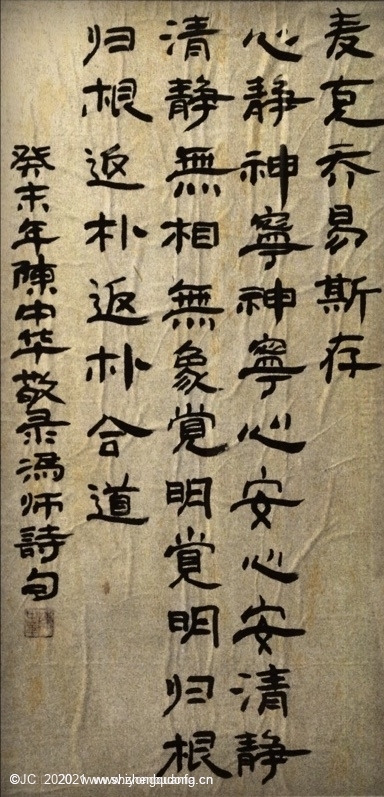 麦克乔易斯存
心静神寧神寧心安心安清静
清静無相無象覚明覚明归根
归根返朴返朴合道
癸未年陳中华敬录馮师詩句
©JC